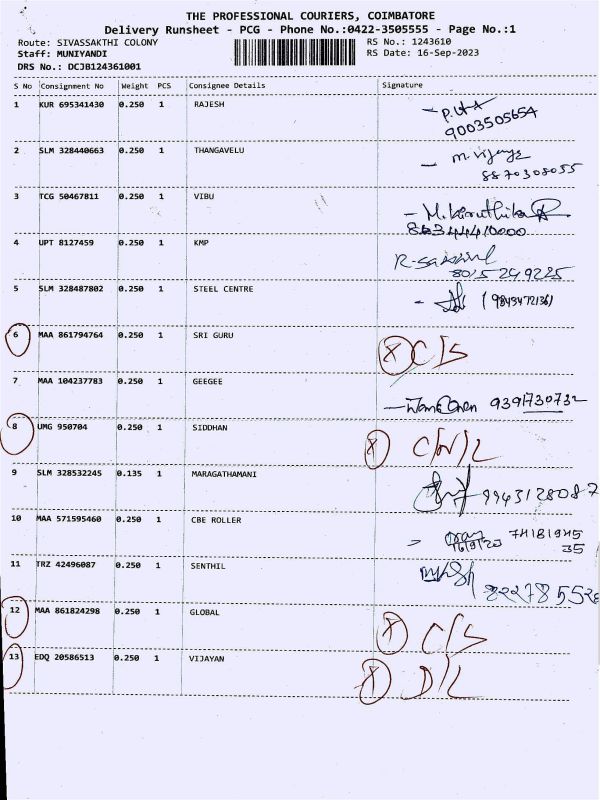 THE PROFESSIONAL COURIERS, COIMBATORE
Delivery Runsheet - PCG - Phone No.:0422-3505555 - Page No.:1
Route: SIVASSAKTHI COLONY RS No.: 1243610
Staff: MUNIYANDI RS Date: 16-Sep-2023
DRS No.: DCJB124361001
S No Consignment No Weight PCS Consignee Details Signature
1 KUR 695341430 0.250 1 RAJESH
9003505654
2 SLM 328440663 0.250 1 THANGAVELU M. Vijaya
8870308055
3 TCG 50467811 0.250 1 VIBU M. Keruthika
4 UPT 8127459 0.250 1 KMP
8015249225
5 SLM 328487802 0.250 1 STEEL CENTRE
6 MAA 861794764 0.250 1 SRI GURU X C/S
7 MAA 104237783 0.250 1 GEEGEE 9391730732
8 UMG 950704 0.250 1 SIDDHAN X C/N/L
9 SLM 328532245 0.135 1 MARAGATHAMANI 9943128087
10 MAA 571595460 0.250 1 CBE ROLLER
16/9/23 35
11 TRZ 42496087 0.250 1 SENTHIL
12 MAA 861824298 0.250 1 GLOBAL X C/S
13 EDQ 20586513 0.250 1 VIJAYAN X D/L